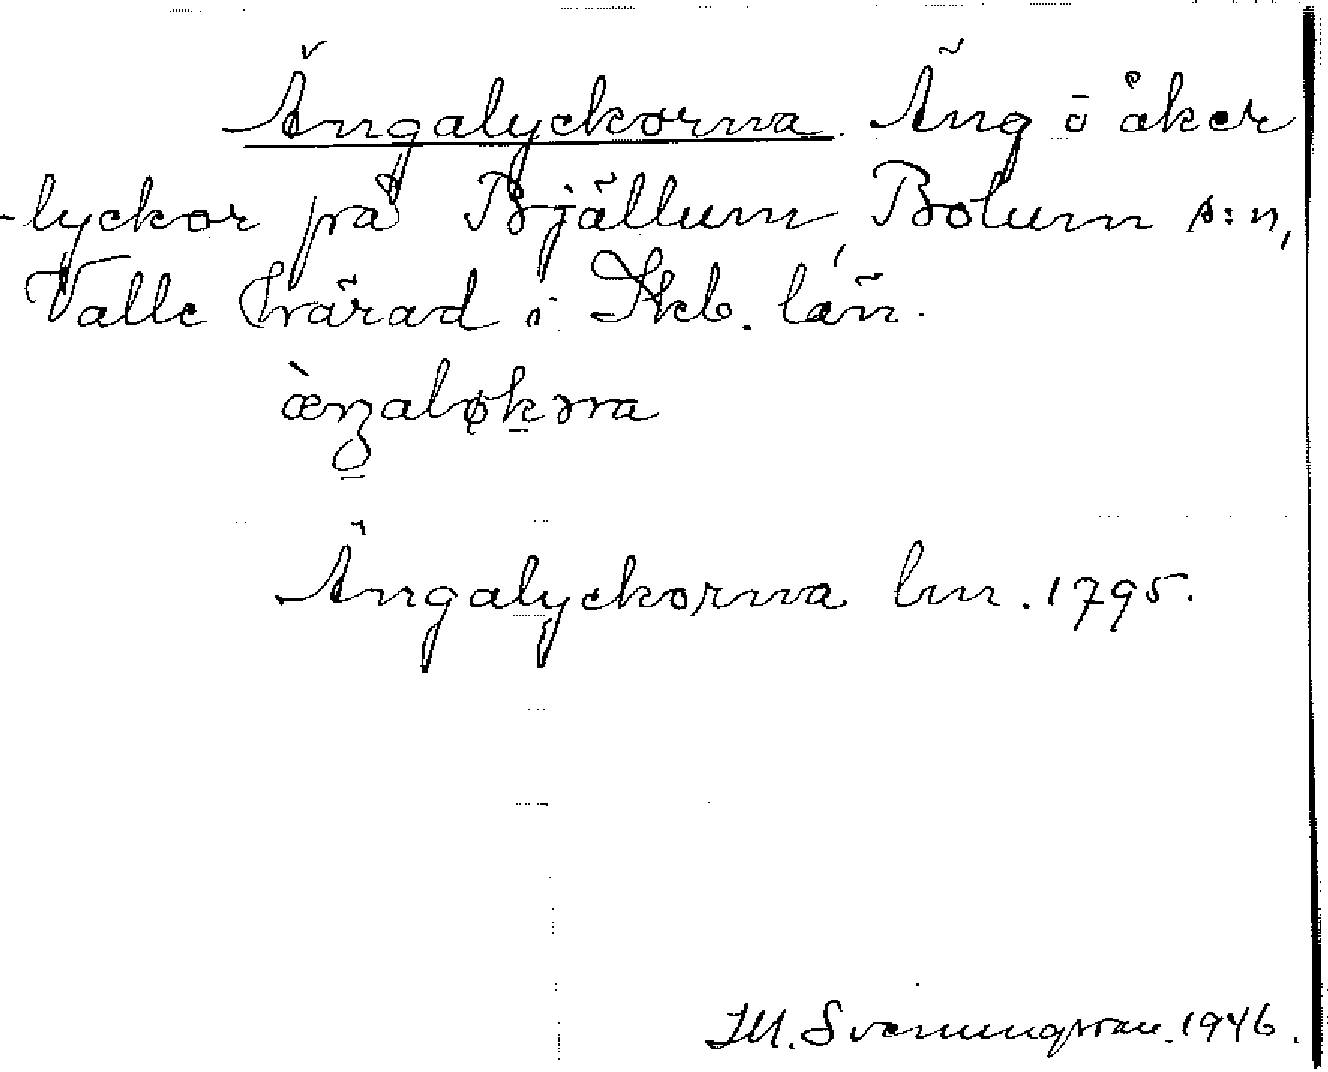 Ängalyckorna. Äng o åker
-lyckor på Bjällum, Bolum s:n,
Valle härad i Skb. län.
Ängalyckorna lm. 1795.
M. Svenungsson. 1946.